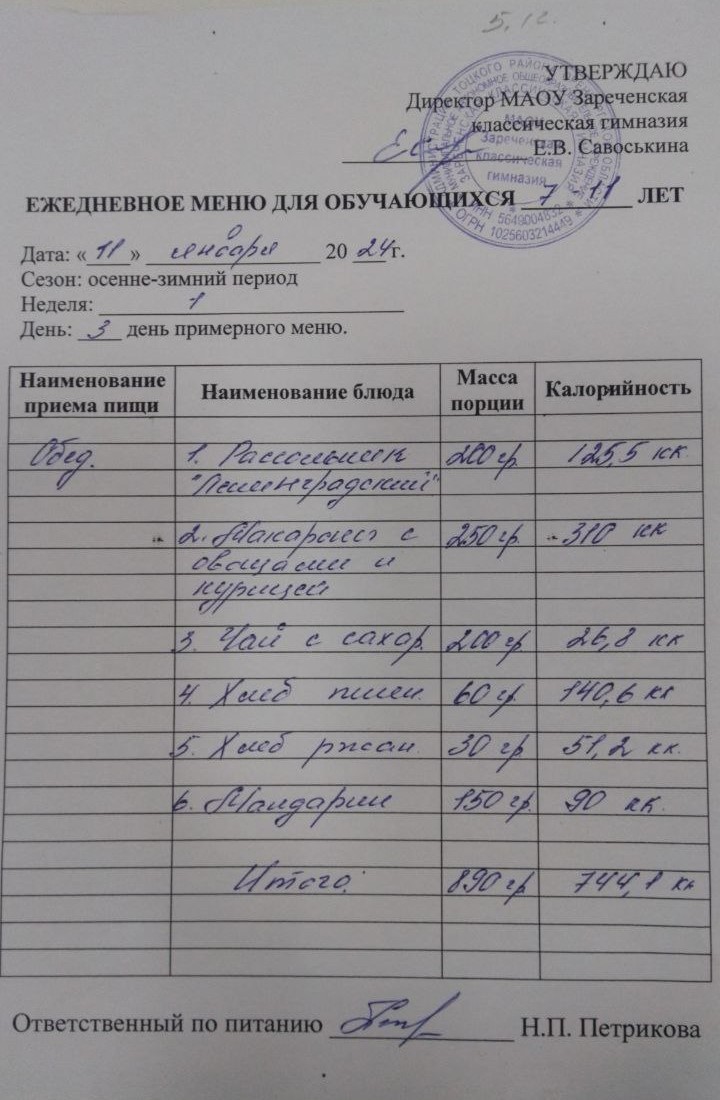 5.12.
УТВЕРЖДАЮ
Директор МАОУ Зареченская
классическая гимназия
Е.В. Савоськина
МАОУ
Зареченская
классическая
гимназия
ИНН 5649004832 * ОГРН 1025603214449 *
ЕЖЕДНЕВНОЕ МЕНЮ ДЛЯ ОБУЧАЮЩИХСЯ 7 - 11 ЛЕТ
Дата: « 11 » января 20 24г.
Сезон: осенне-зимний период
Неделя: 1
День: 3 день примерного меню.
Наименование приема пищи Наименование блюда Масса порции Калорийность
Обед. 1. Рассольник 200 гр. 125,5 кк
"Ленинградский"
2. Макароны с 250 гр. 310 кк
овощами и
курицей
3. Чай с сахар. 200 гр. 26,8 кк
4. Хлеб пшен. 60 гр. 140,6 кк
5. Хлеб ржан. 30 гр. 51,2 кк.
6. Мандарин 150 гр. 90 кк.
Итого: 890 гр. 744,1 кк
Ответственный по питанию Н.П. Петрикова